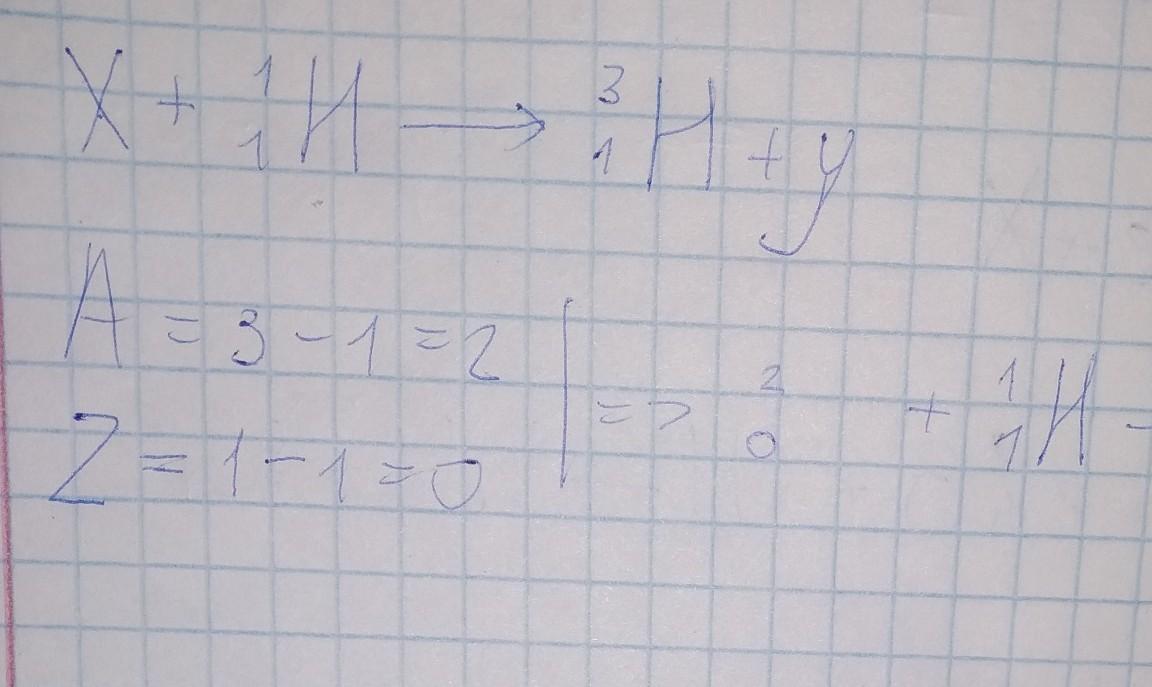 X + ¹₁H → ³₁H + y
A = 3 - 1 = 2
Z = 1 - 1 = 0 | => ²₀ + ¹₁H -